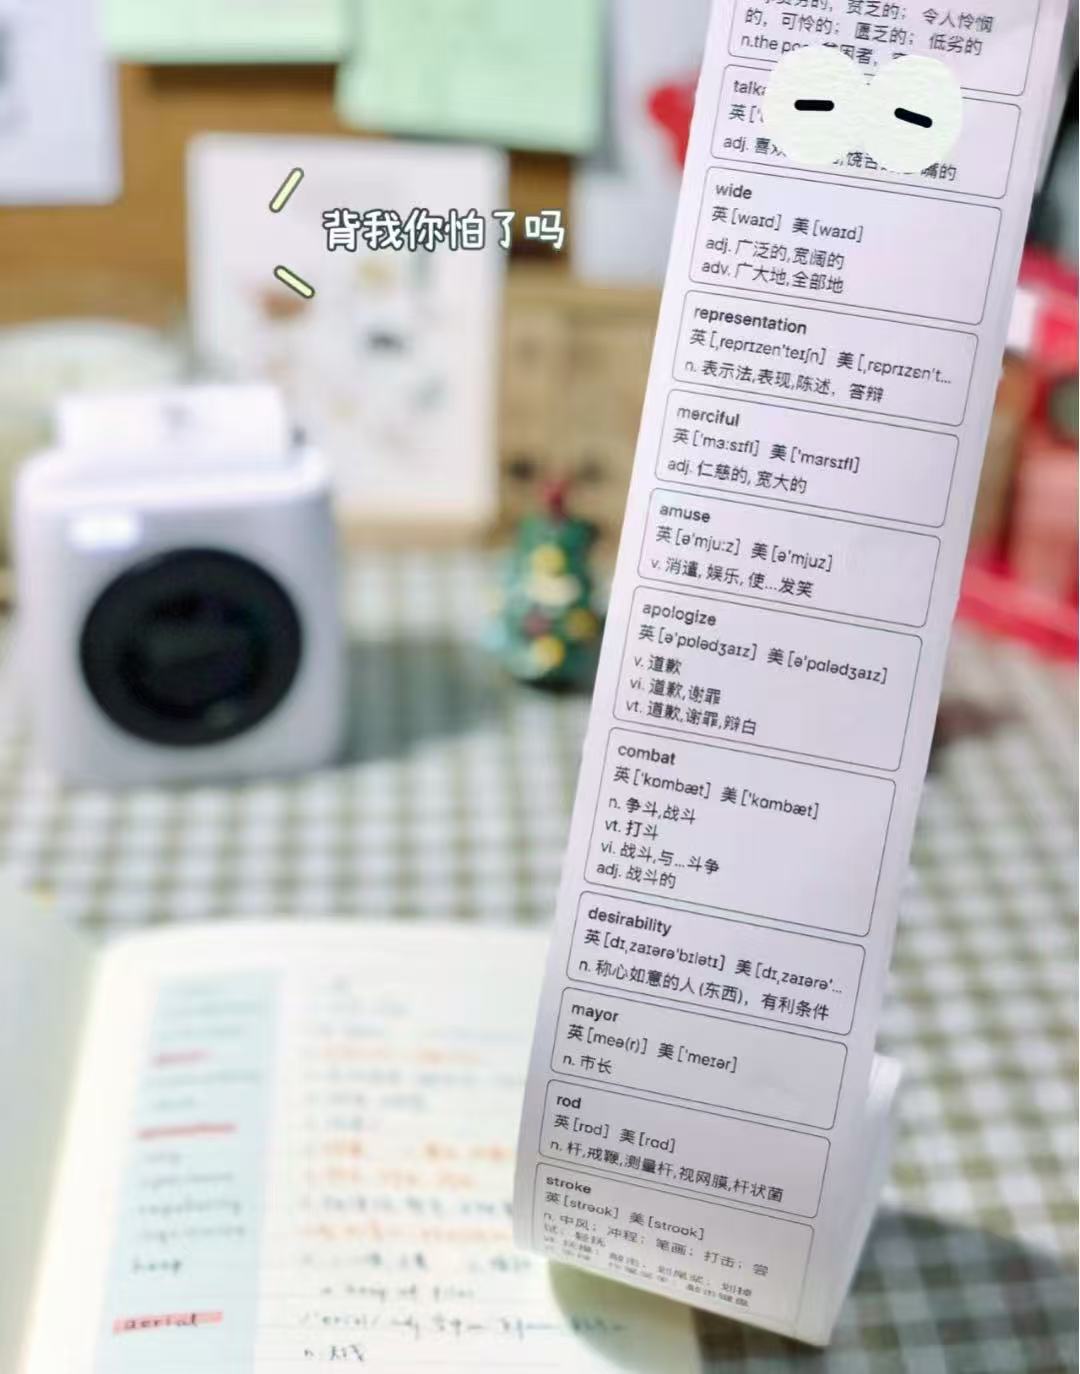 背我你怕了吗
的，贫乏的；令人怜悯
的，可怜的；匮乏的；低劣的
n.the
talka
英
adj. 喜 嘴的
wide
英 [waɪd] 美 [waɪd]
adj. 广泛的,宽阔的
adv. 广大地,全部地
representation
英 [ˌreprɪzen'teɪʃn] 美 [ˌrɛprɪzɛn't...
n. 表示法,表现,陈述，答辩
merciful
英 ['mɜ:sɪfl] 美 ['mɜrsɪfl]
adj. 仁慈的, 宽大的
amuse
英 [ə'mju:z] 美 [ə'mjuz]
v. 消遣, 娱乐, 使...发笑
apologize
英 [ə'pɒlədʒaɪz] 美 [ə'pɑlədʒaɪz]
v. 道歉
vi. 道歉,谢罪
vt. 道歉,谢罪,辩白
combat
英 ['kɒmbæt] 美 ['kɑmbæt]
n. 争斗,战斗
vt. 打斗
vi. 战斗,与...斗争
adj. 战斗的
desirability
英 [dɪˌzaɪərə'bɪlətɪ] 美 [dɪˌzaɪərə'...
n. 称心如意的人 (东西)，有利条件
mayor
英 [meə(r)] 美 ['meɪər]
n. 市长
rod
英 [rɒd] 美 [rɑd]
n. 杆,戒鞭,测量杆,视网膜,杆状菌
stroke
英 [strəʊk] 美 [stroʊk]
n. 中风；冲程；笔画；打击；尝
试；轻抚
heap
aerial